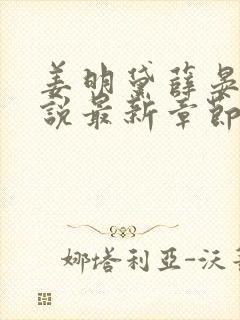 姜明黛薛晏
说最新章節
娜塔利亞-沃